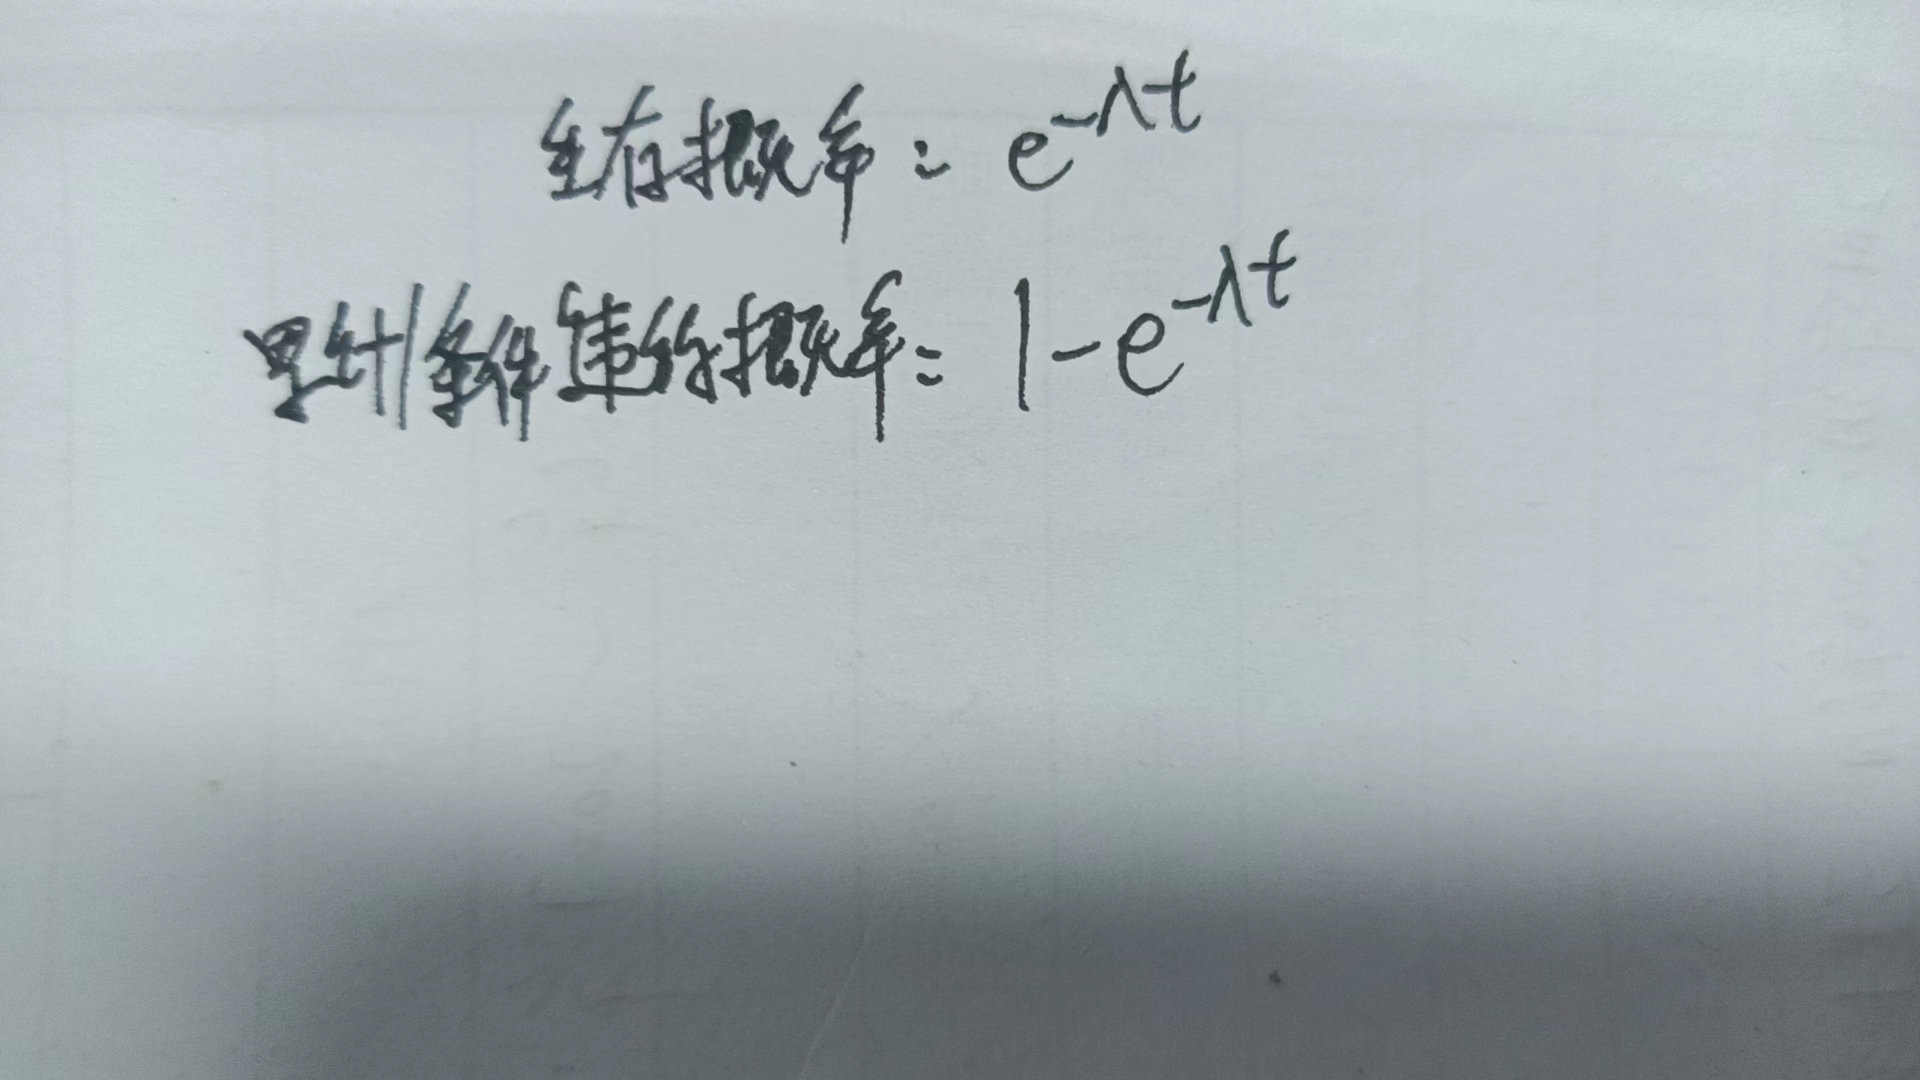 生存概率 = e^{-λt}
累计条件违约概率 = 1-e^{-λt}